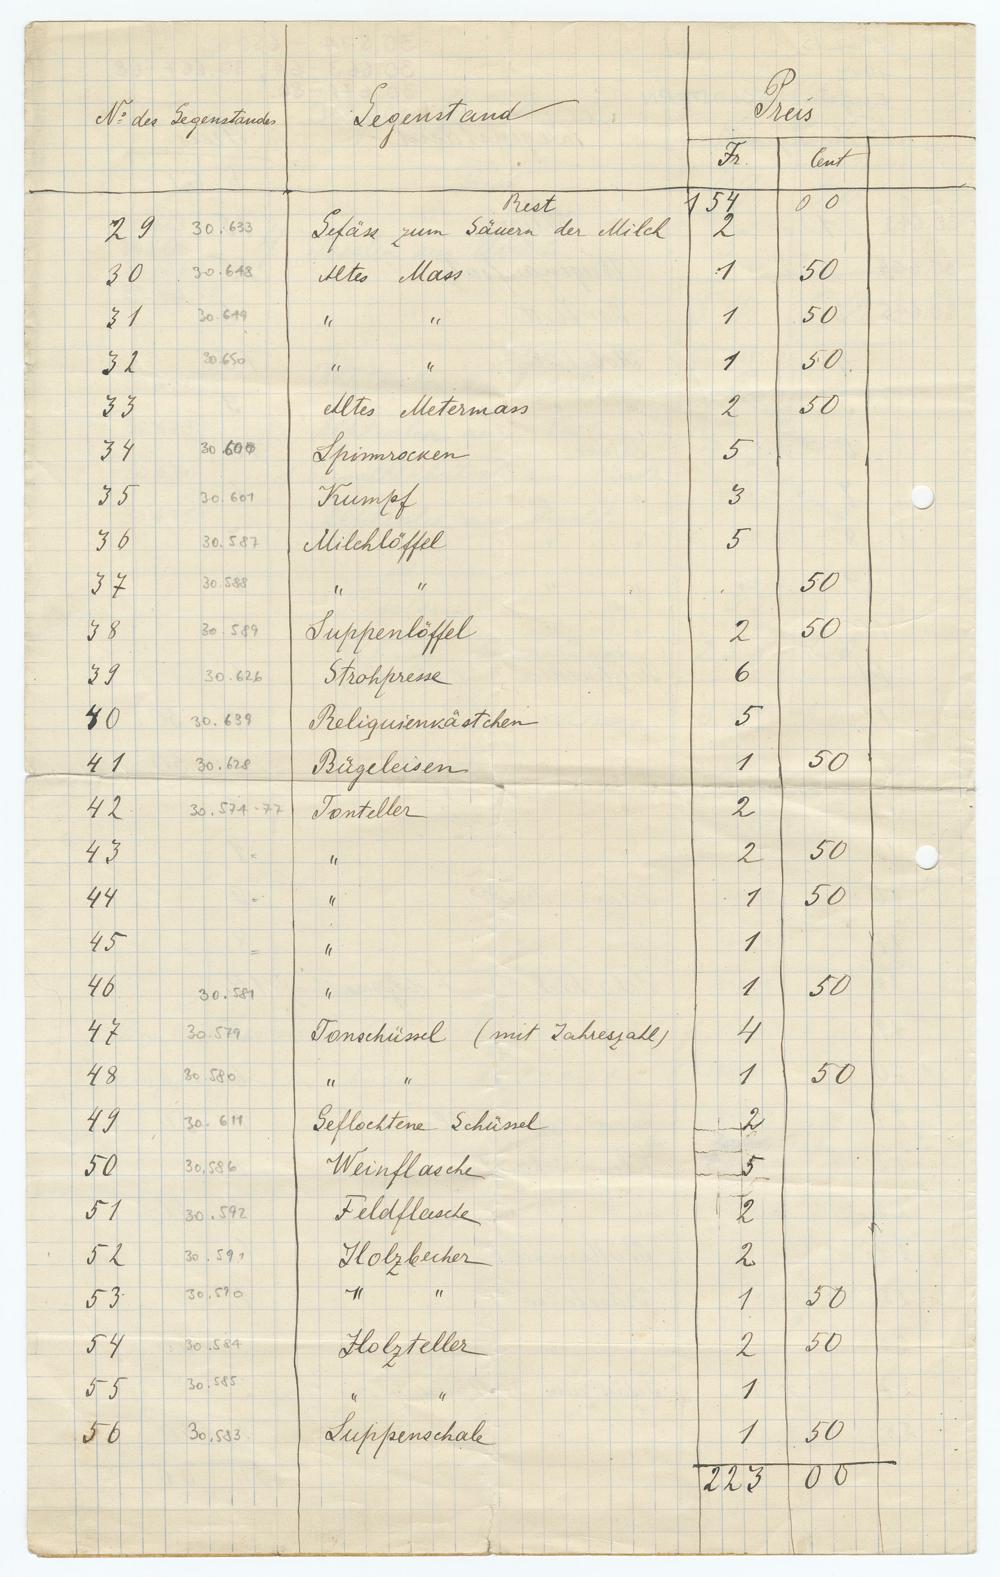 No des Gegenstandes Gegenstand Preis
Fr. Cent
Rest 154 00
29 30.633 Gefäss zum Säuern der Milch 2
30 30.648 Altes Mass 1 50
31 30.649 " " 1 50
32 30.650 " " 1 50
33 Altes Metermass 2 50
34 30.600 Spinnrocken 5
35 30.601 Kumpf 3
36 30.587 Milchlöffel 5
37 30.588 " " 50
38 30.589 Suppenlöffel 2 50
39 30.626 Strohpresse 6
40 30.639 Reliquienkästchen 5
41 30.628 Bügeleisen 1 50
42 30.574-77 Tonteller 2
43 " " 2 50
44 " " 1 50
45 " " 1
46 30.581 " 1 50
47 30.579 Tonschüssel (mit Jahreszahl) 4
48 30.580 " " 1 50
49 30.611 Geflochtene Schüssel 2
50 30.586 Weinflasche 5
51 30.592 Feldflasche 2
52 30.591 Holzbecher 2
53 30.590 " " 1 50
54 30.584 Holzteller 2 50
55 30.585 " " 1
56 30.583 Suppenschale 1 50
223 00